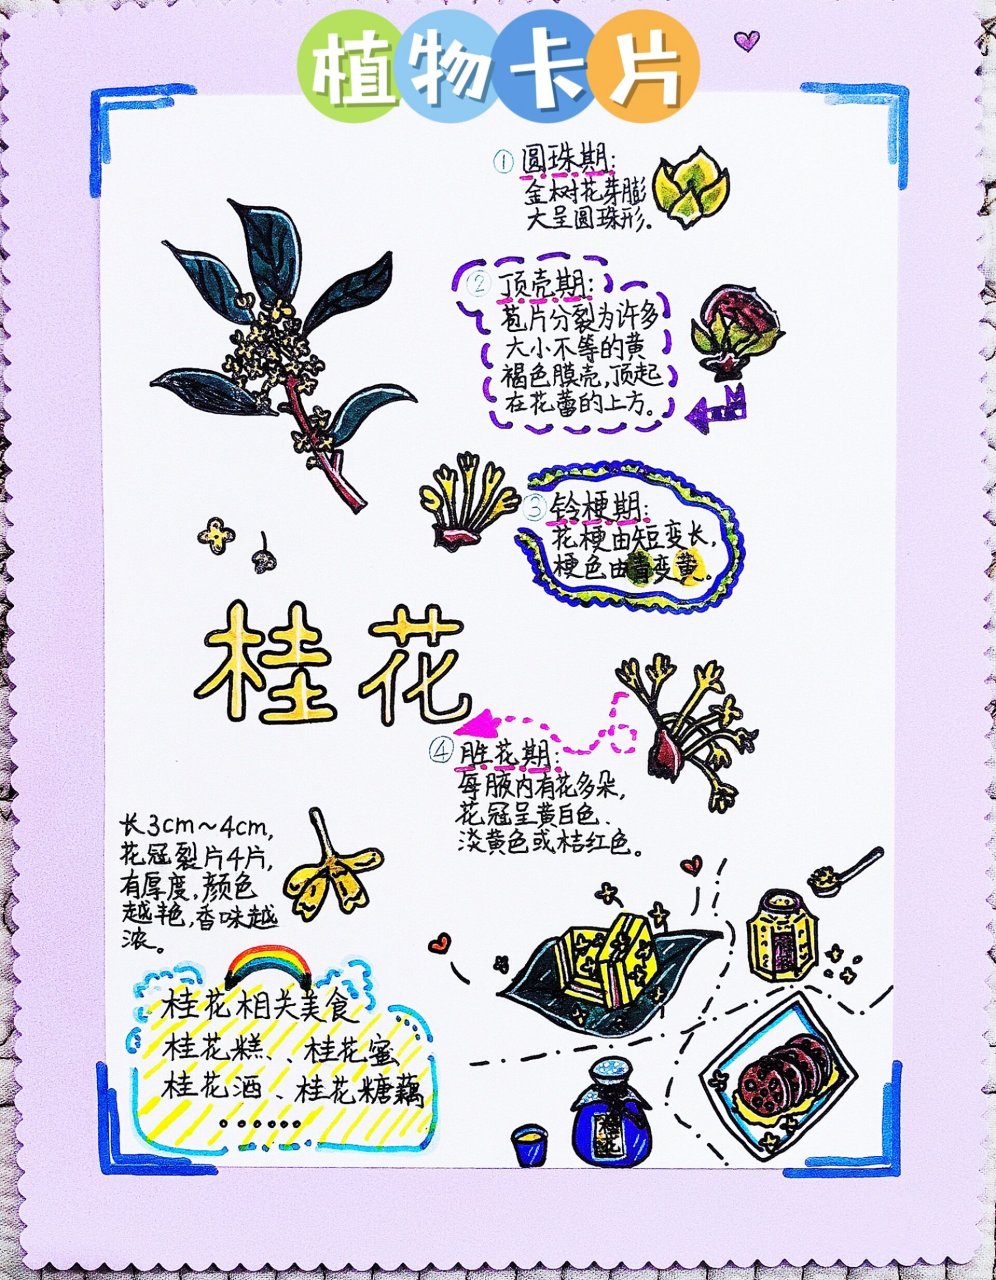 植物卡片
①圆珠期:
金树花芽膨
大呈圆珠形。
②顶壳期:
苞片分裂为许多
大小不等的黄
褐色膜壳,顶起
在花蕾的上方。
③铃梗期:
花梗由短变长,
梗色由青变黄。
桂花
④胜花期:
每腋内有花多朵,
花冠呈黄白色、
淡黄色或桔红色。
长3cm~4cm,
花冠裂片4片,
有厚度,颜色
越艳,香味越
浓。
桂花相关美食
桂花糕、、桂花蜜
桂花酒、桂花糖藕
……